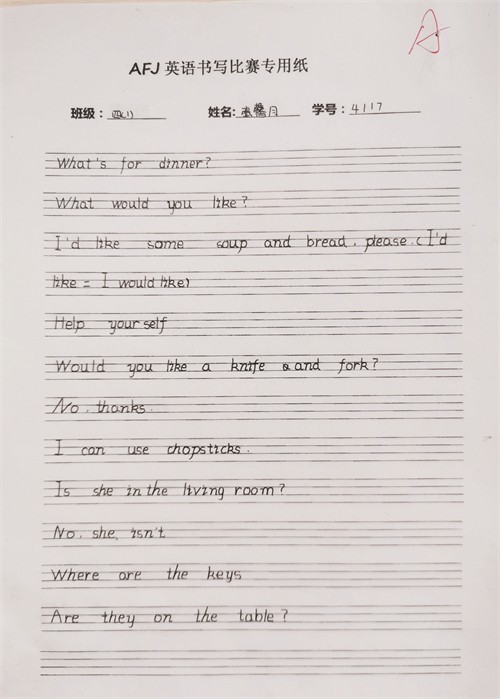 A
AFJ 英语书写比赛专用纸
班级： 四(1) 姓名: 月 学号： 4117
What's for dinner?
What would you like?
I'd like some soup and bread, please. (I'd
like = I would like)
Help yourself
Would you like a knife and fork?
No, thanks.
I can use chopsticks.
Is she in the living room?
No, she isn't
Where are the keys
Are they on the table?